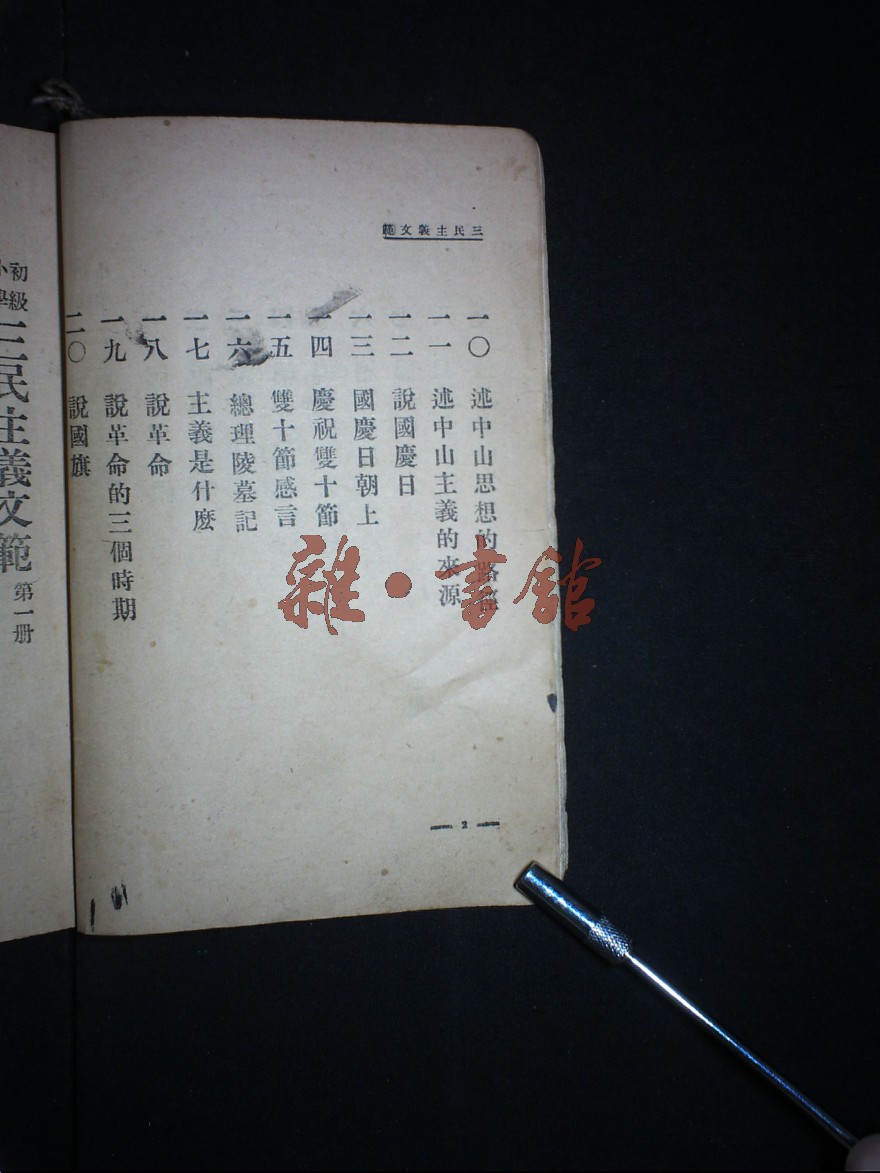 三民主義文範
一〇 述中山思想的路徑
一一 述中山主義的來源
一二 說國慶日
一三 國慶日朝上
一四 慶祝雙十節
一五 雙十節感言
一六 總理陵墓記
一七 主義是什麼
一八 說革命
一九 說革命的三個時期
二〇 說國旗
2
初級小學三民主義文範 第一册
雜·書館